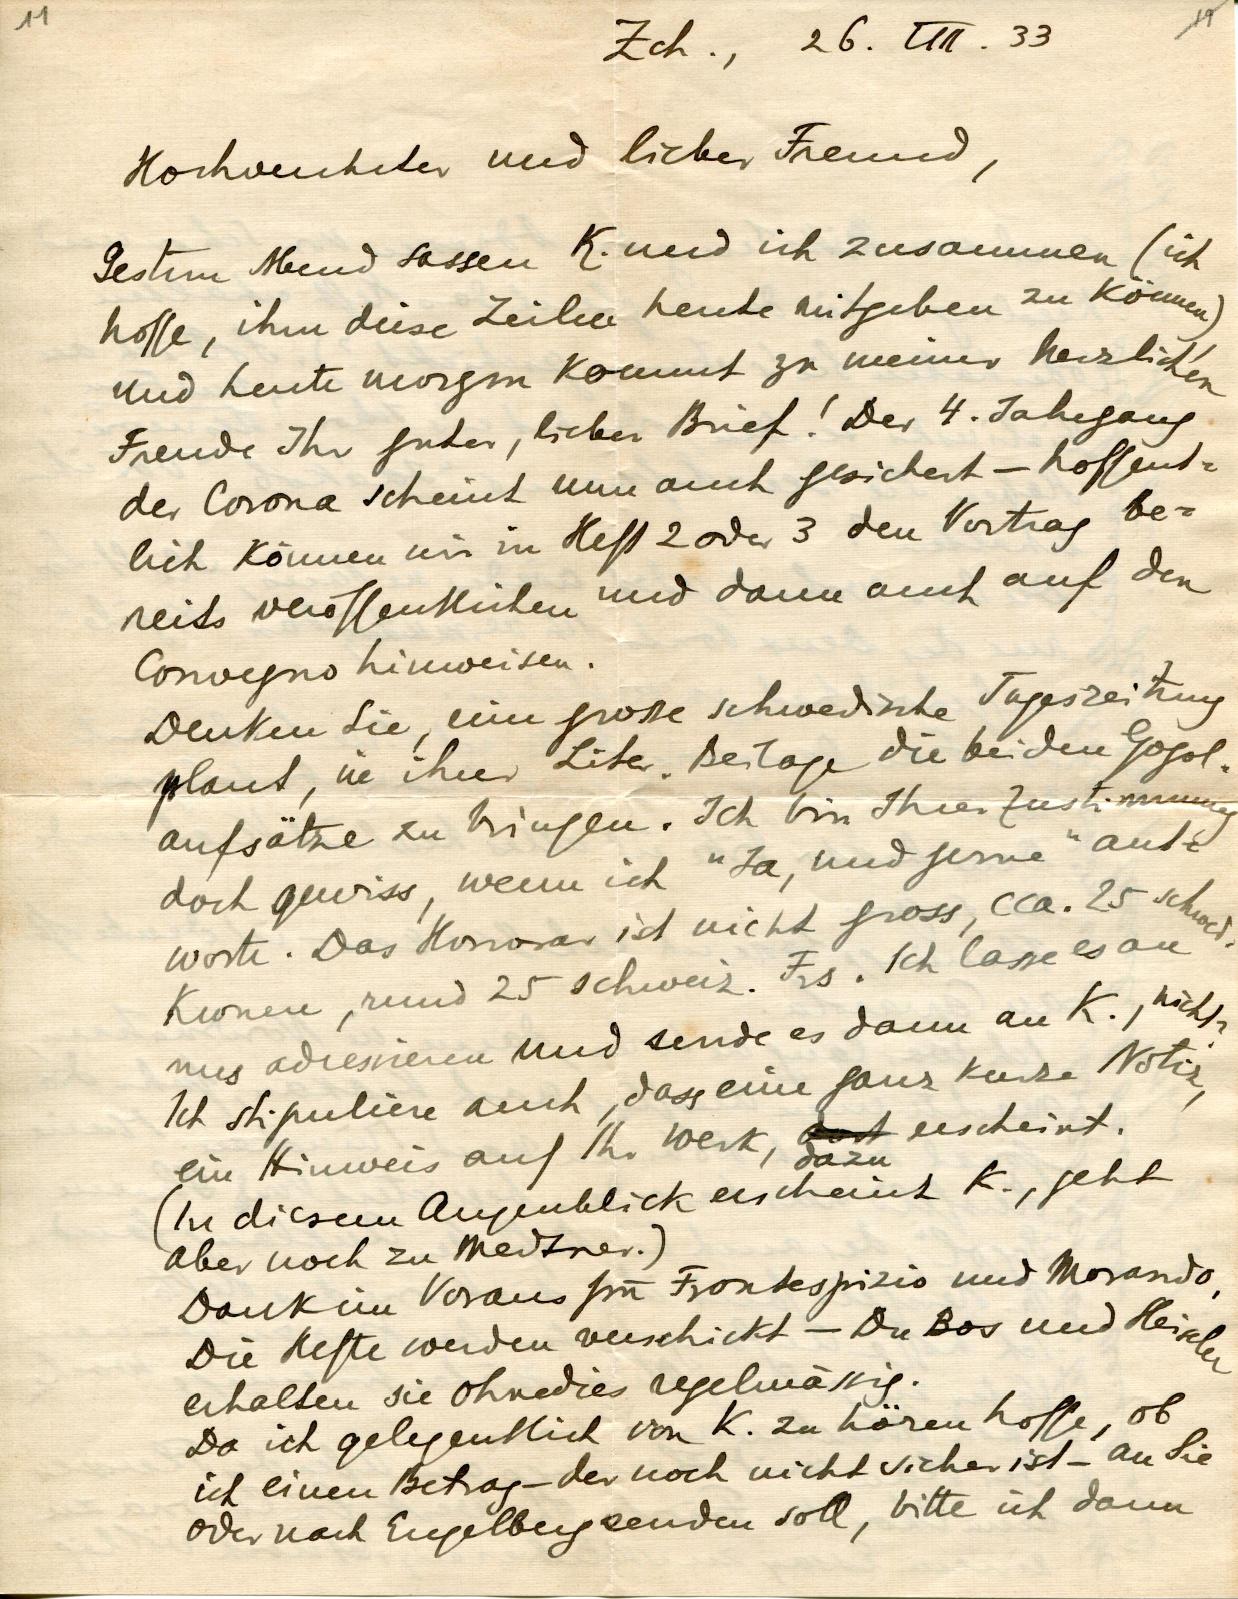 11
19
Zch., 26. VIII. 33
Hochverehrter und lieber Freund,
Gestern Abend sassen K. und ich zusammen (ich
hoffe, ihm diese Zeilen heute mitgeben zu können)
und heute morgen kommt zu meiner herzlichen
Freude Ihr guter, lieber Brief! Der 4. Jahrgang
der Corona scheint nun auch gesichert – hoffent=
lich können wir in Heft 2 oder 3 den Vortrag be=
reits veröffentlichen und dann auch auf den
Convegno hinweisen.
Denken Sie, eine grosse schwedische Tageszeitung
plant, in ihrer Liter. Beilage die beiden Gogol-
aufsätze zu bringen. Ich bin Ihrer Zustimmung
doch gewiss, wenn ich "Ja, und gerne" ant=
worte. Das Honorar ist nicht gross, cca. 25 schwed.
Kronen, rund 25 schweiz. Frs. Ich lasse es an
uns adressieren und sende es dann an K., nicht?
Ich stipuliere auch, dass eine ganz kurze Notiz,
ein Hinweis auf Ihr Werk, dort erscheint.
dazu
(In diesem Augenblick erscheint K., geht
aber noch zu Medtner.)
Dank im Voraus für Frontespizio und Morando,
Die Hefte werden verschickt – Du Bos und Heiseler
erhalten sie ohnedies regelmässig.
Da ich gelegentlich von K. zu hören hoffe, ob
ich einen Betrag – der noch nicht sicher ist – an Sie
oder nach Engelberg senden soll, bitte ich dann